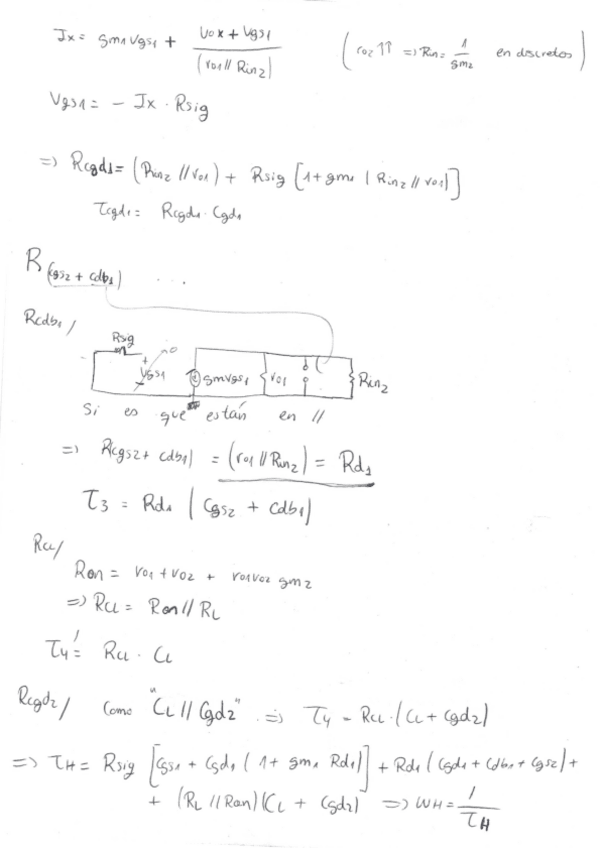 Ix = gm1 Vgs1 + (Vox + Vgs1) / (ro1 // Rin2) (ro2 ↑↑ => Rin = 1/gm2 en discretos)
Vgs1 = - Ix · Rsig
=> Rcgd1 = (Rin2 // ro1) + Rsig [1 + gm1 (Rin2 // ro1)]
τcgd1 = Rcgd1 · Cgd1
R(cgs2 + cdb1) ...
Rcdb1/
Rsig
+ Vgs1 - gmvgs1 ro1 Rin2
Si es que están en //
=> R(cgs2 + cdb1) = (ro1 // Rin2) = Rd1
τ3 = Rd1 (Cgs2 + Cdb1)
RCL/
Ron = ro1 + ro2 + ro1ro2 gm2
=> RCL = Ron // RL
τ4' = RCL · CL
Rcgd2/ Como "CL // Cgd2" => τ4 = RCL · (CL + Cgd2)
=> τH = Rsig [Cgs1 + Cgd1 (1 + gm1 Rd1)] + Rd1 (Cgd1 + Cdb1 + Cgs2) +
+ (RL // Ron)(CL + Cgd2) => WH = 1/τH